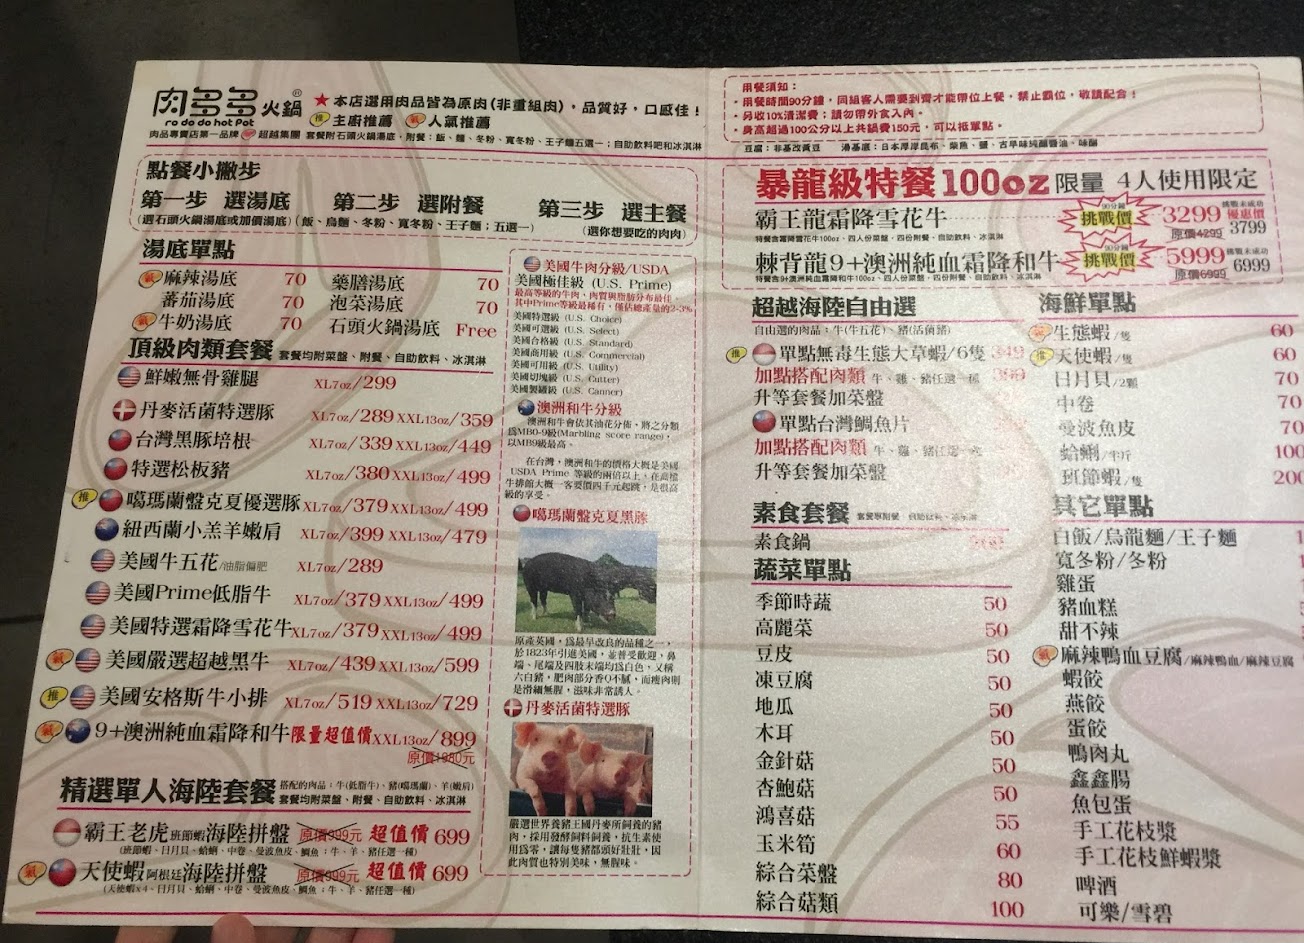 肉多多火鍋®
ro do do hot Pot
★本店選用肉品皆為原肉(非重組肉)，品質好，口感佳！
推 主廚推薦 氣 人氣推薦
肉品專賣店第一品牌 超越集團 套餐附石頭火鍋湯底，附餐：飯、麵、冬粉、寬冬粉、王子麵五選一；自助飲料吧和冰淇淋
點餐小撇步
第一步 選湯底 第二步 選附餐 第三步 選主餐
(選石頭火鍋湯底或加價湯底) (飯、烏麵、冬粉、寬冬粉、王子麵；五選一) (選你想要吃的肉肉)
湯底單點
氣 麻辣湯底 70 藥膳湯底 70
蕃茄湯底 70 泡菜湯底 70
氣 牛奶湯底 70 石頭火鍋湯底 Free
頂級肉類套餐 套餐均附菜盤、附餐、自助飲料、冰淇淋
鮮嫩無骨雞腿 XL7oz/299
丹麥活菌特選豚 XL7oz/289 XXL13oz/359
台灣黑豚培根 XL7oz/339 XXL13oz/449
特選松板豬 XL7oz/380 XXL13oz/499
推 噶瑪蘭盤克夏優選豚 XL7oz/379 XXL13oz/499
紐西蘭小羔羊嫩肩 XL7oz/399 XXL13oz/479
美國牛五花/油脂偏肥 XL7oz/289
美國Prime低脂牛 XL7oz/379 XXL13oz/499
美國特選霜降雪花牛 XL7oz/379 XXL13oz/499
氣 美國嚴選超越黑牛 XL7oz/439 XXL13oz/599
推 美國安格斯牛小排 XL7oz/519 XXL13oz/729
氣 9+澳洲純血霜降和牛 限量超值價 XXL13oz/899
原價1980元
精選單人海陸套餐 搭配的肉品：牛(低脂牛)、豬(噶瑪蘭)、羊(嫩肩)
套餐均附菜盤、附餐、自助飲料、冰淇淋
霸王老虎班節蝦海陸拼盤 原價999元 超值價 699
(班節蝦、日月貝、蛤蜊、中卷、曼波魚皮、鯛魚；牛、羊、豬任選一種)
氣 天使蝦阿根廷海陸拼盤 原價999元 超值價 699
(天使蝦x4、日月貝、蛤蜊、中卷、曼波魚皮、鯛魚；牛、羊、豬任選一種)
美國牛肉分級/USDA
美國極佳級 (U.S. Prime)
最高等級的牛肉、肉質與脂肪分布最佳
其中Prime等級最稀有，僅佔總產量的2-3%
美國特選級 (U.S. Choice)
美國可選級 (U.S. Select)
美國合格級 (U.S. Standard)
美國商用級 (U.S. Commercial)
美國可用級 (U.S. Utility)
美國切塊級 (U.S. Cutter)
美國製罐級 (U.S. Canner)
澳洲和牛分級
澳洲和牛會依其油花分佈，將之分類
為MB0-9級(Marbling score range)，
以MB9級最高。
在台灣，澳洲和牛的價格大概是美國
USDA Prime 等級的兩倍以上，在高檔
牛排館大概一客要價四千元起跳，是很高
級的享受。
噶瑪蘭盤克夏黑豚
原產英國，為最早改良的品種之一，
於1823年引進美國，並普受歡迎，鼻
端、尾端及四肢末端均為白色，又稱
六白豬，肥肉部分香Q不膩，而瘦肉則
是滑細無腥，滋味非常誘人。
丹麥活菌特選豚
嚴選世界養豬王國丹麥所飼養的豬
肉，採用發酵飼料飼養，抗生素使
用為零，讓每隻豬都頭好壯壯，因
此肉質也特別美味，無腥味。
用餐須知：
・用餐時間90分鐘，同組客人需要到齊才能帶位上餐，禁止霸位，敬請配合！
・另收10%清潔費；請勿帶外食入內。
・身高超過100公分以上共鍋費150元，可以抵單點。
豆腐：非基改黃豆 湯基底：日本厚厚昆布、柴魚、鹽、古早味純釀醬油、味醂
暴龍級特餐100oz限量 4人使用限定
霸王龍霜降雪花牛 90分鐘 挑戰價 3299 挑戰未成功 優惠價
特餐含霜降雪花牛100oz、四人份菜盤、四份附餐、自助飲料、冰淇淋 原價4299 3799
棘背龍9+澳洲純血霜降和牛 90分鐘 挑戰價 5999 挑戰未成功
特餐含9+澳洲純血霜降和牛100oz、四人份菜盤、四份附餐、自助飲料、冰淇淋 原價6999 6999
超越海陸自由選
自由選的肉品：牛(牛五花)、豬(活菌豬)
推 單點無毒生態大草蝦/6隻 349
加點搭配肉類 牛、雞、豬任選一種 399
升等套餐加菜盤
單點台灣鯛魚片
加點搭配肉類 牛、雞、豬任選一種
升等套餐加菜盤
素食套餐 套餐都附餐、自助飲料、冰淇淋
素食鍋
蔬菜單點
季節時蔬 50
高麗菜 50
豆皮 50
凍豆腐 50
地瓜 50
木耳 50
金針菇 50
杏鮑菇 50
鴻喜菇 55
玉米筍 60
綜合菜盤 80
綜合菇類 100
海鮮單點
氣 生態蝦/隻 60
推 天使蝦/隻 60
日月貝/2顆 70
中卷 70
曼波魚皮 70
蛤蜊/半斤 100
班節蝦/隻 200
其它單點
白飯/烏龍麵/王子麵
寬冬粉/冬粉
雞蛋
豬血糕
甜不辣
氣 麻辣鴨血豆腐/麻辣鴨血/麻辣豆腐
蝦餃
燕餃
蛋餃
鴨肉丸
鑫鑫腸
魚包蛋
手工花枝漿
手工花枝鮮蝦漿
啤酒
可樂/雪碧